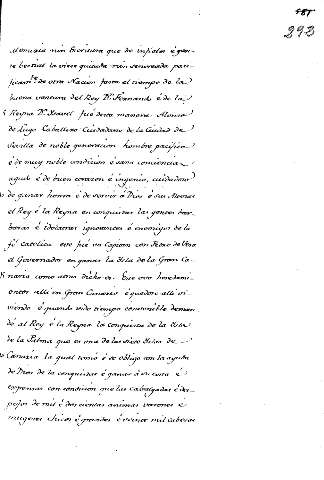 293
Memoria nin Escritura que de infieles é gen-
te bestial la viese quitada nin senoreada paci-
ficam.te de otra Nacion fasta el tiempo de la
buena ventura del Rey D.n Fernando é de la
Reyna D.a Isavel fué desta manera Alonso
de Lugo Caballero Ciudadano de la Ciudad de
Sevilla de noble generacion hombre pacifico
é de muy noble condicion é sana conciencia
agudo é de buen corazon é ingenio, cuidadoso
de ganar honra é de servir á Dios é sus Altezas
el Rey é la Reyna en conquistar las gentes bar-
baras é idolatras ignorantes é enemigos de la
fé catolica este fué un Capitan con Pedro de Vera
el Governador en ganar la Isla de la Gran Ca-
naria como atras dicho es. Este ovo heredami-
entos alli en Gran Canaria é quedose alli vi-
viendo é quando vido tiempo convenible deman-
dó al Rey é la Reyna la conquista de la Isla
de la Palma que es una de las siete Islas de
Canaria la qual tomó é se obligó con la ayuda
de Dios de la conquistar é ganar á su costa é
expensas con condicion que las cabalgadas é des-
pojos de mil é doscientas animas varones é
mugeres chicos é grandes é veinte mil cabezas